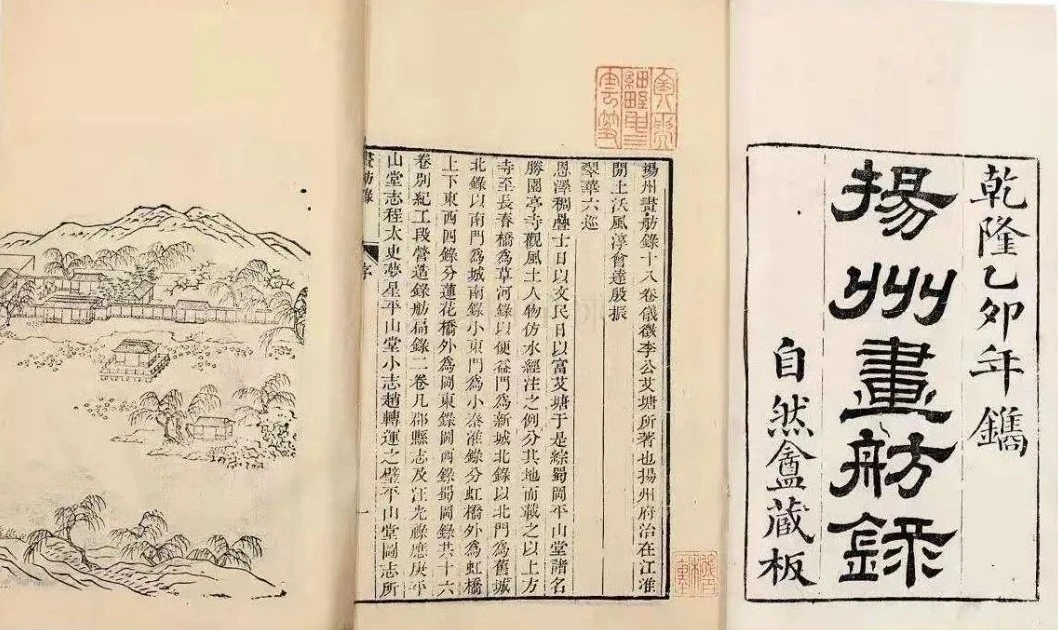 乾隆乙卯年鐫
揚州畫舫錄
自然盦藏板
揚州畫舫錄十八卷儀徵李公艾塘所著也揚州府治在江淮
閒土沃風淳會達殷振
翠華六巡
恩澤稠疊士日以文民日以富艾塘于是綜蜀岡平山堂諸名
勝園亭寺觀風土人物仿水經注之例分其地而載之以上方
寺至長春橋爲草河錄以便益門爲新城北錄以北門爲舊城
北錄以南門爲城南錄小東門爲小秦淮錄分虹橋外爲虹橋
上下東西四錄分蓮花橋外爲岡東錄岡西錄蜀岡錄共十六
卷別紀工段營造錄舫扁錄二卷凡郡縣志及汪光祿應庚平
山堂志程太史夢星平山堂小志趙轉運之壁平山堂圖志所
畫舫錄
序
一